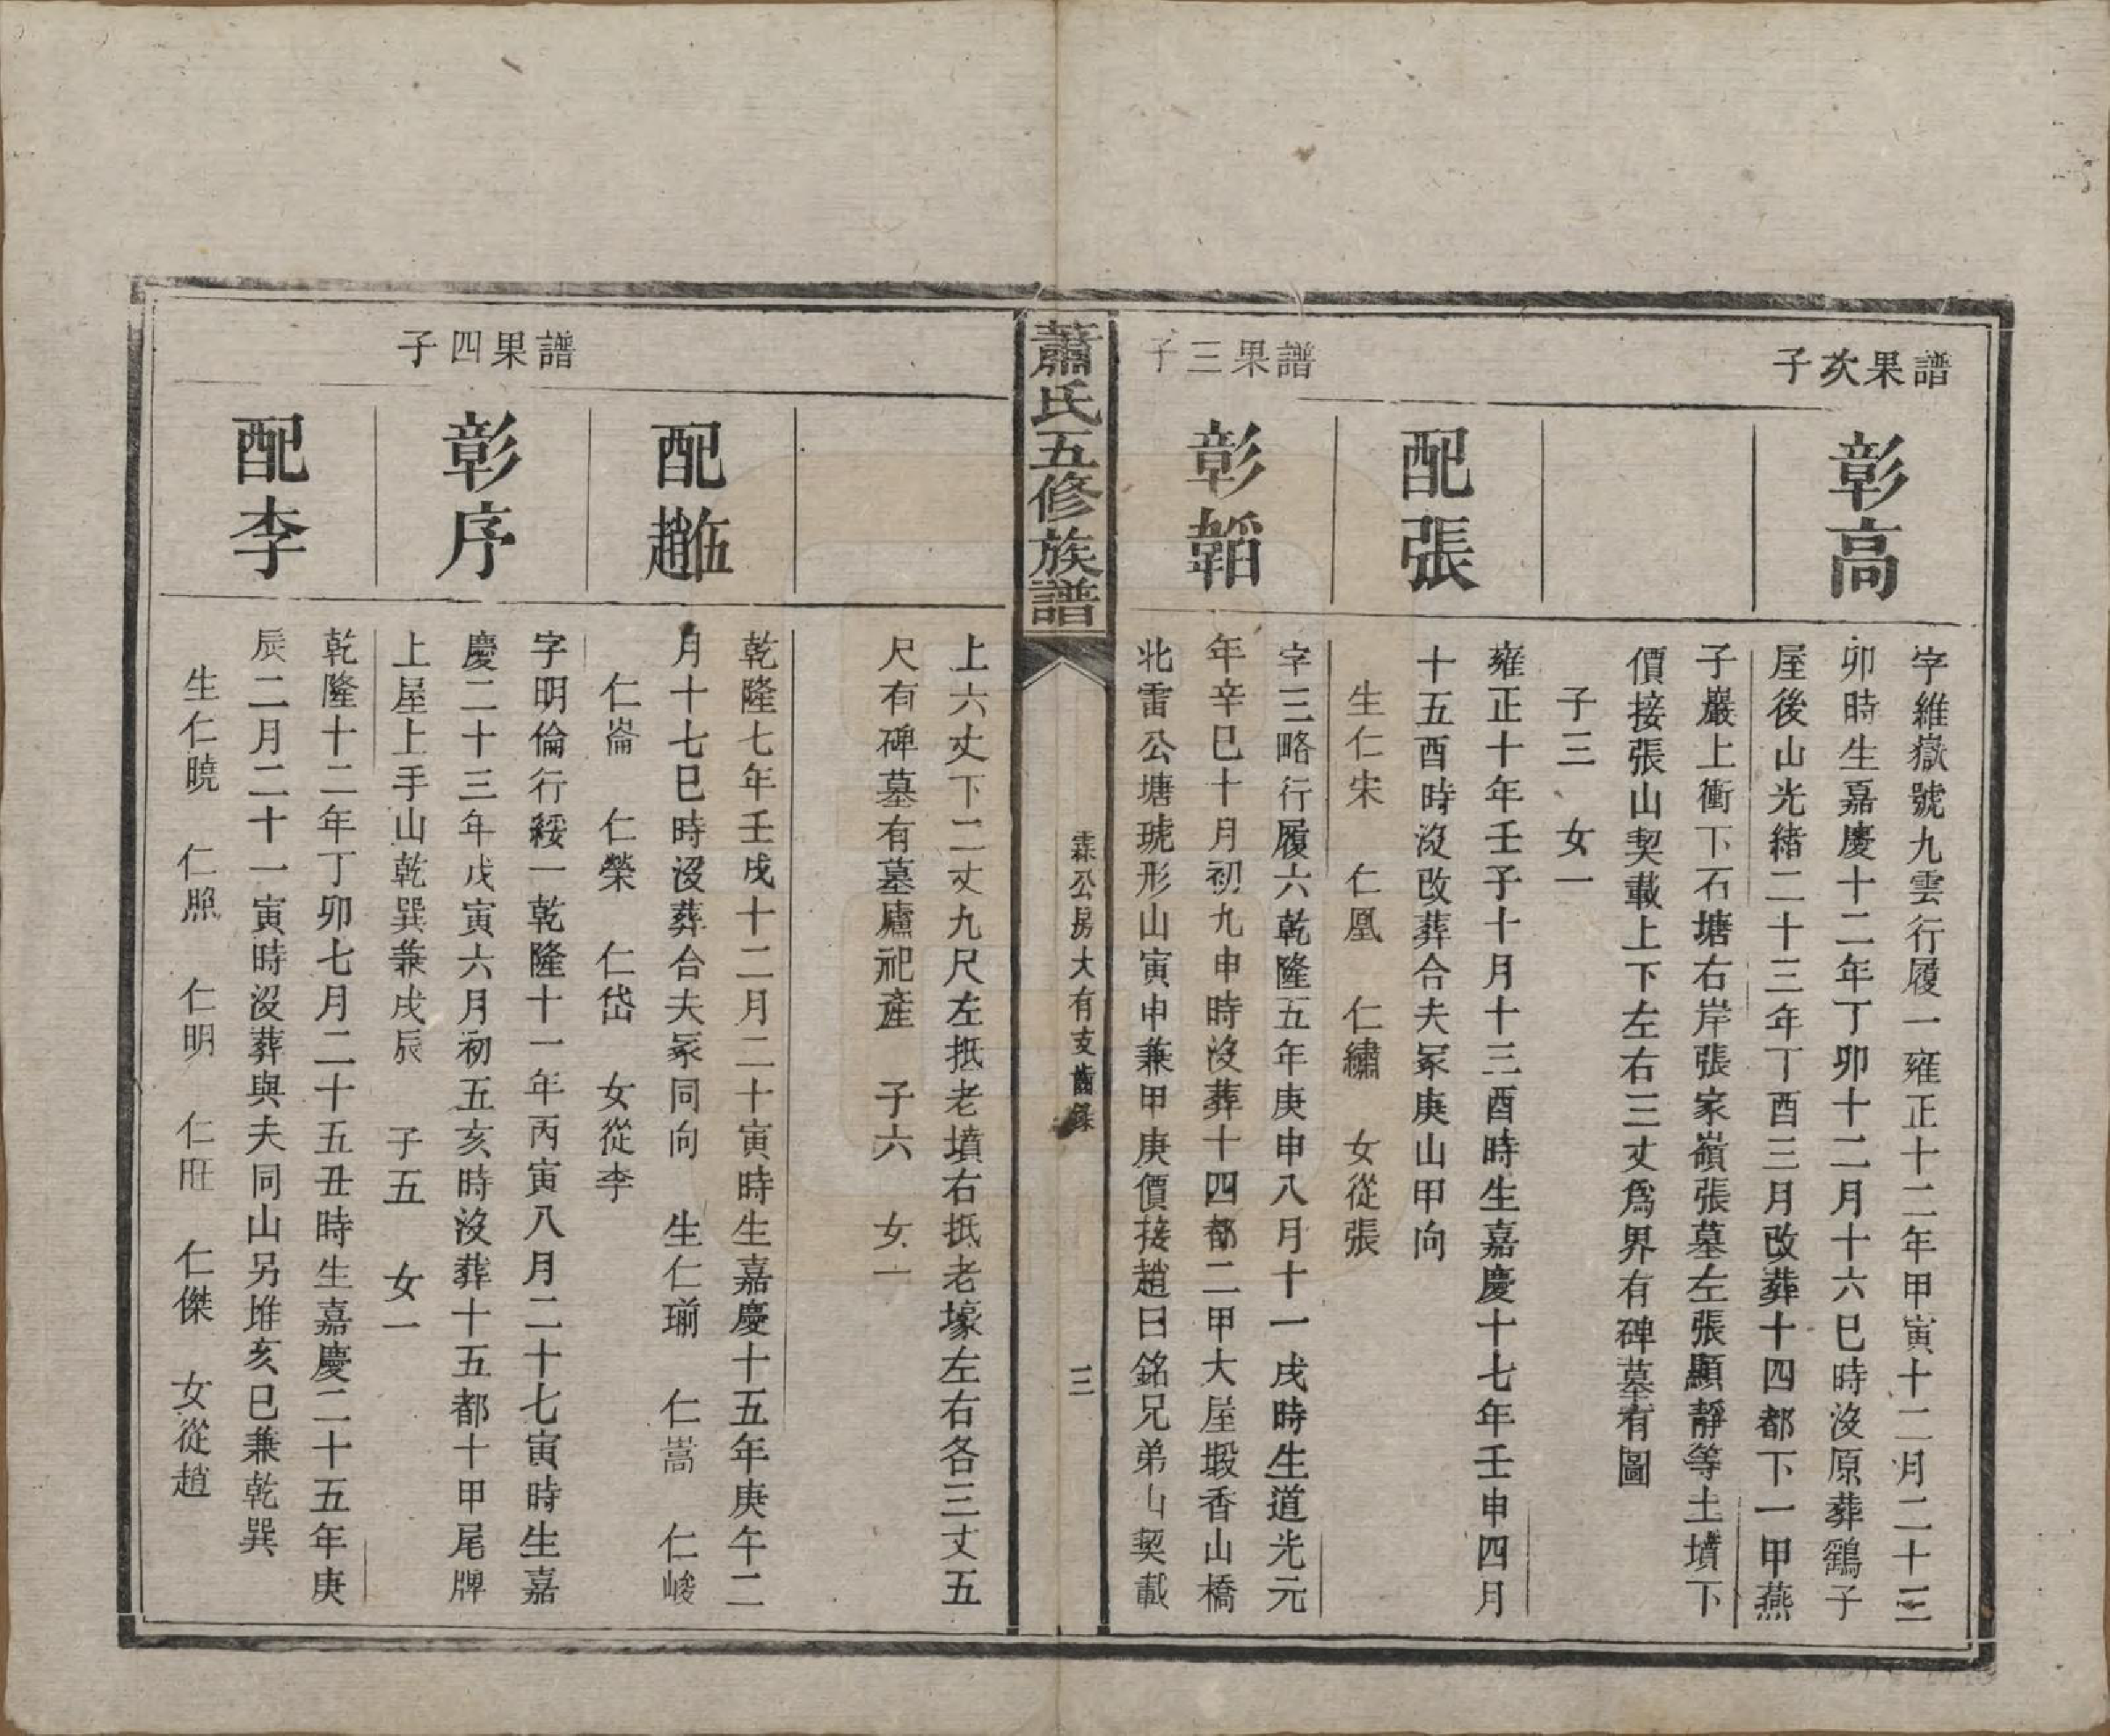 譜果次子
彰高
字維嶽號九雲行履一雍正十二年甲寅十二月二十三
卯時生嘉慶十二年丁卯十二月十六巳時沒原葬鷂子
屋後山光緒二十三年丁酉三月改葬十四都下一甲燕
子巖上衝下石塘右岸張家嶺張墓左張顯靜等土墳下
價接張山契載上下左右三丈爲界有碑墓有圖
子三 女一
配張
雍正十年壬子十月十三酉時生嘉慶十七年壬申四月
十五酉時沒改葬合夫冢庚山甲向
生仁宋 仁凰 仁繡 女從張
譜果三子
彰韜
字三略行履六乾隆五年庚申八月十一戌時生道光元
年辛巳十月初九申時沒葬十四都二甲大屋塅香山橋
北雷公塘琥形山寅申兼甲庚價接趙日銘兄弟山契載
蕭氏五修族譜
霖公房大有支齒錄
三
上六丈下二丈九尺左抵老墳右抵老壕左右各三丈五
尺有碑墓有墓廬祀產 子六 女一
配趙伍
乾隆七年壬戌十二月二十寅時生嘉慶十五年庚午二
月十七巳時沒葬合夫冢同向 生仁瑚 仁嵩 仁峻
仁崙 仁榮 仁岱 女從李
譜果四子
彰序
字明倫行綏一乾隆十一年丙寅八月二十七寅時生嘉
慶二十三年戊寅六月初五亥時沒葬十五都十甲尾牌
上屋上手山乾巽兼戌辰 子五 女一
配李
乾隆十二年丁卯七月二十五丑時生嘉慶二十五年庚
辰二月二十一寅時沒葬與夫同山另堆亥巳兼乾巽
生仁曉 仁照 仁明 仁旺 仁傑 女從趙